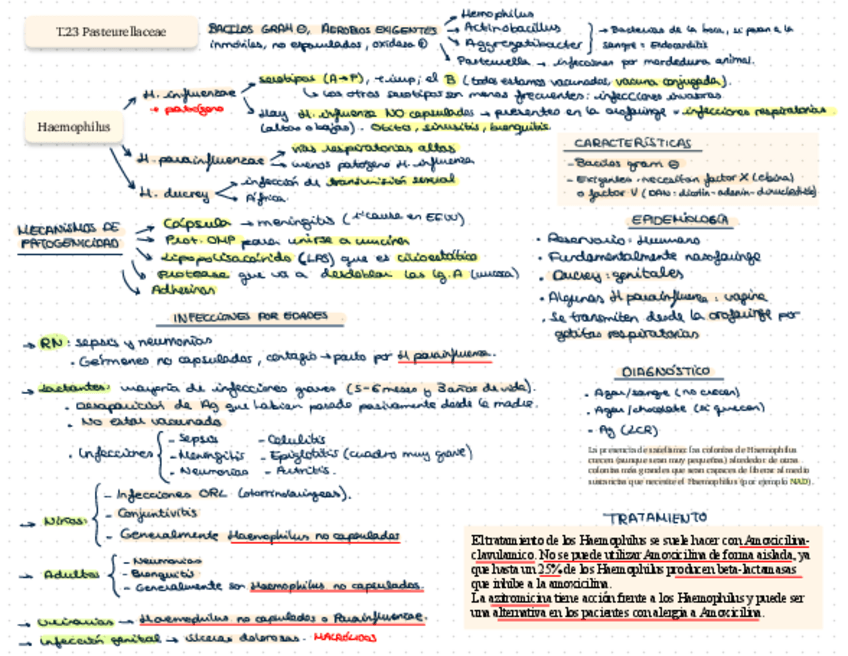 T.23 Pasteurellaceae
BACILOS GRAM ⊖, AEROBIOS EXIGENTES
inmóviles, no esporulados, oxidasa ⊕
Hemophilus
Actinobacillus
Aggregatibacter
Pasteurella → infecciones por mordedura animal.
→ Bacterias de la boca, si pasan a la
sangre = Endocarditis
Haemophilus
H. influenzae
→ patógeno
serotipos (A→F), + imp; el B (todos estamos vacunados, vacuna conjugada).
↳ Los otros serotipos son menos frecuentes: infecciones invasoras
Hay H. influenza NO capsulados → presentes en la orofaringe = infecciones respiratorias
(altas o bajas). Otitis, sinusitis, bronquitis
H. parainfluenzae
vías respiratorias altas
menos patógeno H. influenza
H. ducrey
infección de transmisión sexual
África.
CARACTERÍSTICAS
- Bacilos gram ⊖
- Exigentes: necesitan factor X (hemina)
o factor V (DAN: diotin-adenin-dinucleótido)
MECANISMOS DE
PATOGENICIDAD
Cápsula → meningitis (1ª causa en EEUU)
Prot. OMP para unirse a mucina
Lipopolisacárido (LPS) que es cilioestático
Proteasa que va a desdoblar las Ig.A (mucosa)
Adhesinas
EPIDEMIOLOGÍA
• Reservorio: Humano
• Fundamentalmente nasofaringe
• Ducrey: genitales
• Algunas H parainfluenza: vagina
• Se transmiten desde la orofaringe por
gotitas respiratorias
INFECCIONES POR EDADES
→ RN: sepsis y neumonías
• Gérmenes no capsulados, contagio → parto por H parainfluenza.
→ Lactantes: mayoría de infecciones graves (5-6 meses y 3 años de vida).
• Desaparición de Ag que habían pasado pasivamente desde la madre.
• No estar vacunado
• Infecciones
- Sepsis
- Meningitis
- Neumonías
- Celulitis
- Epiglotitis (cuadro muy grave)
- Artritis.
DIAGNÓSTICO
• Agar/sangre (no crecen)
• Agar/chocolate (sí crecen)
• Ag (LCR)
La presencia de satelismo: las colonias de Haemophilus
crecen (aunque sean muy pequeñas) alrededor de otras
colonias más grandes que sean capaces de liberar al medio
sustancias que necesite el Haemophilus (por ejemplo NAD).
→ Niños:
- Infecciones ORL (otorrinolaringeas).
- Conjuntivitis
- Generalmente Haemophilus no capsulados
→ Adultos
- Neumonías
- Bronquitis
- Generalmente son Haemophilus no capsulados.
→ Urinarias → Haemophilus no capsulados o Parainfluenzae.
→ Infección genital → úlceras dolorosas. MACRÓLIDOS
TRATAMIENTO
El tratamiento de los Haemophilus se suele hacer con Amoxicilina-
clavulamico. No se puede utilizar Amoxicilina de forma aislada, ya
que hasta un 25% de los Haemophilus producen beta-lactamasas
que inhibe a la amoxicilina.
La azitromicina tiene acción frente a los Haemophilus y puede ser
una alternativa en los pacientes con alergia a Amoxicilina.